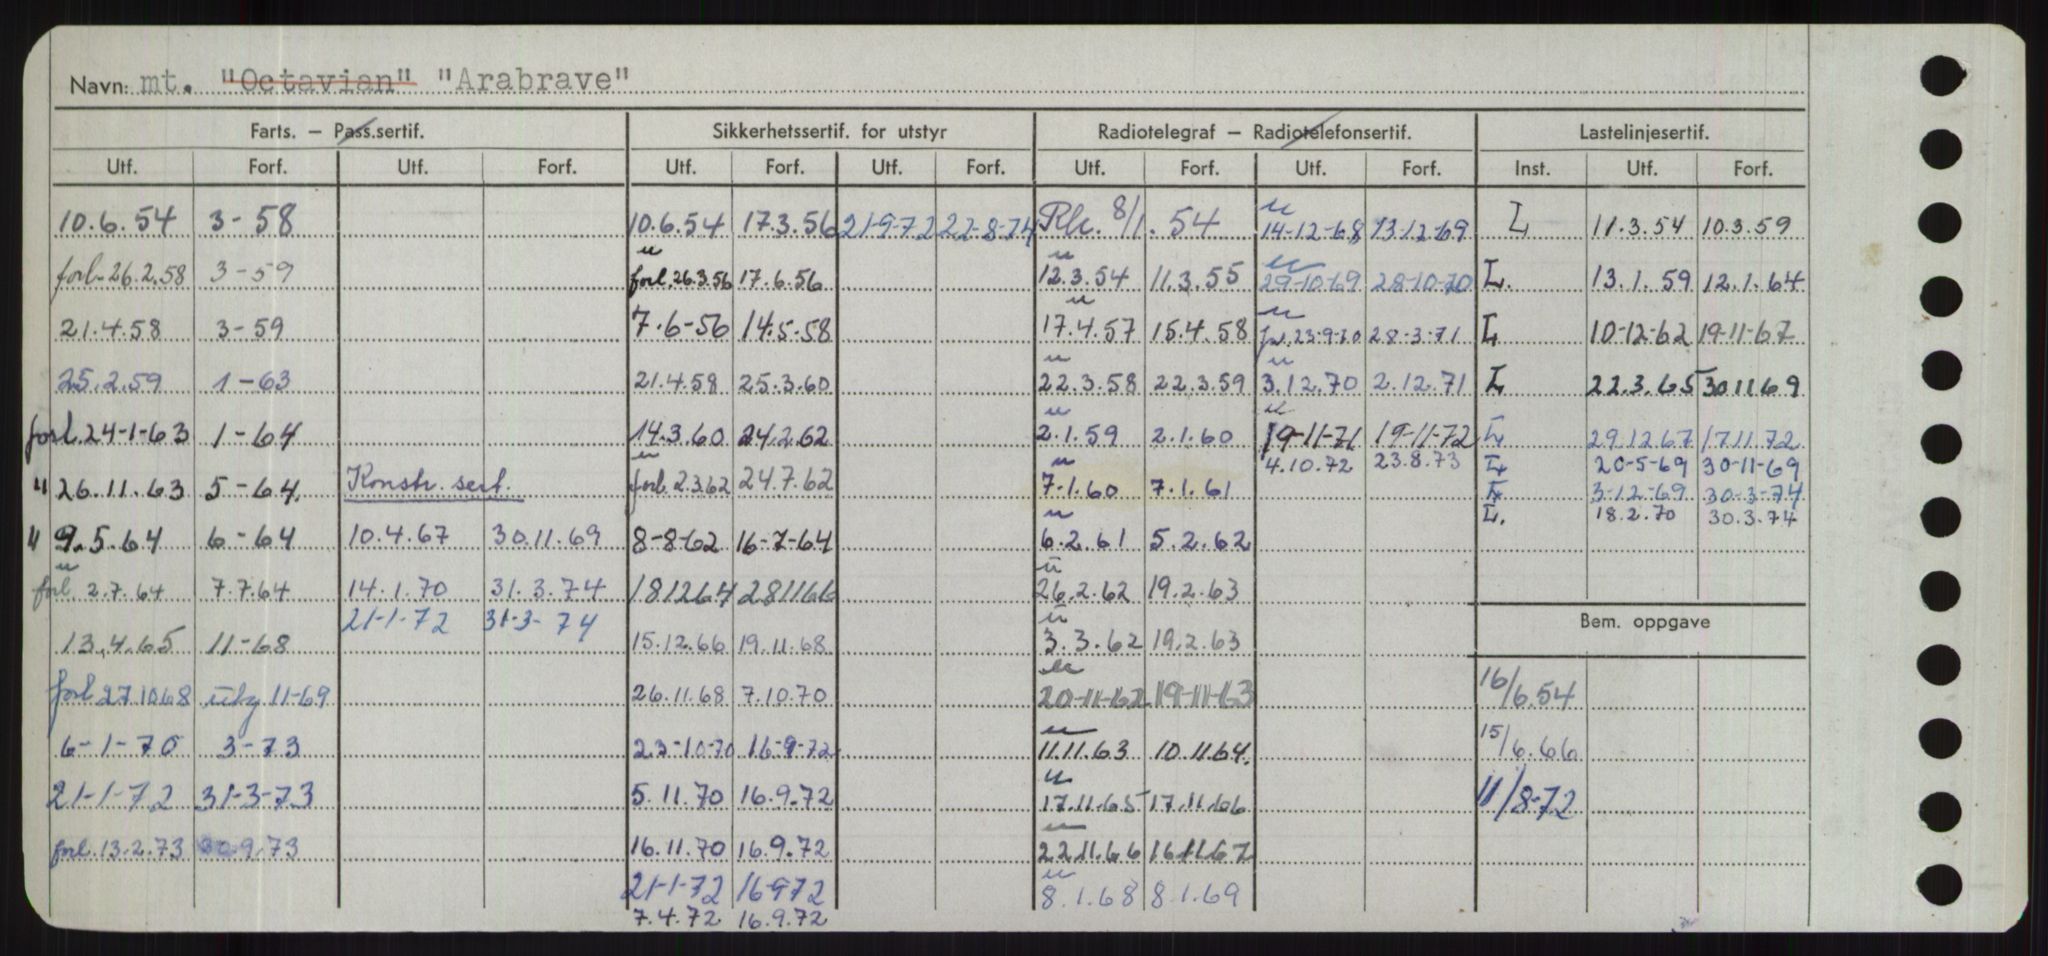 Navn: mt. "Octavian" "Arabrave"
Farts. — Pass.sertif. Sikkerhetssertif. for utstyr Radiotelegraf — Radiotelefonsertif. Lastelinjesertif.
Utf. Forf. Utf. Forf. Utf. Forf. Utf. Forf. Utf. Forf. Utf. Forf. Inst. Utf. Forf.
10.6.54 3-58 10.6.54 17.3.56 21-9-72 22-8-74 8/1.54 14-12-68 13-12-69 L 11.3.54 10.3.59
forl. 26.2.58 3-59 forl. 26.3.56 17.6.56 12.3.54 11.3.55 29-10-69 28-10-70 L. 13.1.59 12.1.64
21.4.58 3-59 7.6-56 14.5-58 17.4.57 15.4.58 23-9-70 28-3-71 L 10-12-62 19-11-67
25.2.59 1-63 21.4.58 25.3.60 22.3.58 22.3.59 3.12.70 2.12.71 L 22.3.65 30.11.69
forl. 24-1-63 1-64 14.3.60 24.2.62 2.1.59 2.1.60 19-11-71 19-11-72 L 29.12.67 17.11.72
4.10.72 23.8.73 L 20-5-69 30-11-69
" 26.11.63 5-64. Konstr. sert. forl. 2.3.62 24.7.62 7.1.60 7.1.61 L 3-12-69 30-3-74
L. 18.2.70 30.3.74
" 9.5.64 6-64 10.4.67 30.11.69 8-8-62 16-7-64 6.2.61 5.2.62
forl. 2.7.64 7.7.64 14.1.70 31.3.74 181264 281166 26.2.62 19.2.63
21-1-72 31-3-74 Bem. oppgave
13.4.65 11-68 15.12.66 19.11.68 3.3.62 19.2.63
forl 27.10.68 utg 11-69 26.11.68 7.10.70 20-11-62 19-11-63 16/6.54
6-1-70 3-73 22-10-70 16-9-72 11.11.63 10.11.64. 15/6.66
21-1-72 31-3-73 5.11.70 16.9.72 17.11.65 17.11.66 11/8-72
forl. 13.2.73 30.9.73 16.11.70 16.9.72 22.11.66 16.11.67
21-1-72 16-9-72 8.1.68 8.1.69
7.4.72 16.9.72